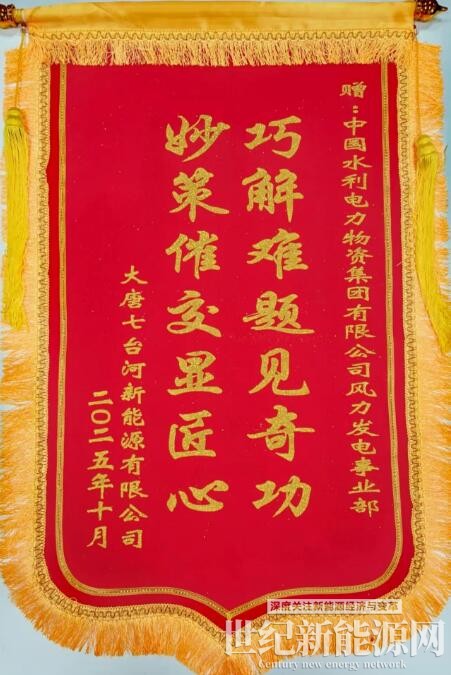 赠：中国水利电力物资集团有限公司风力发电事业部
巧解难题见奇功
妙策催交显匠心
大唐七台河新能源有限公司
二〇二五年十月
深度关注新能源经济与变革
世纪新能源网
Century new energy network